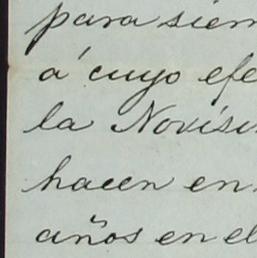 para siem
á cuyo efe
la Novísi
hacen en
años en el